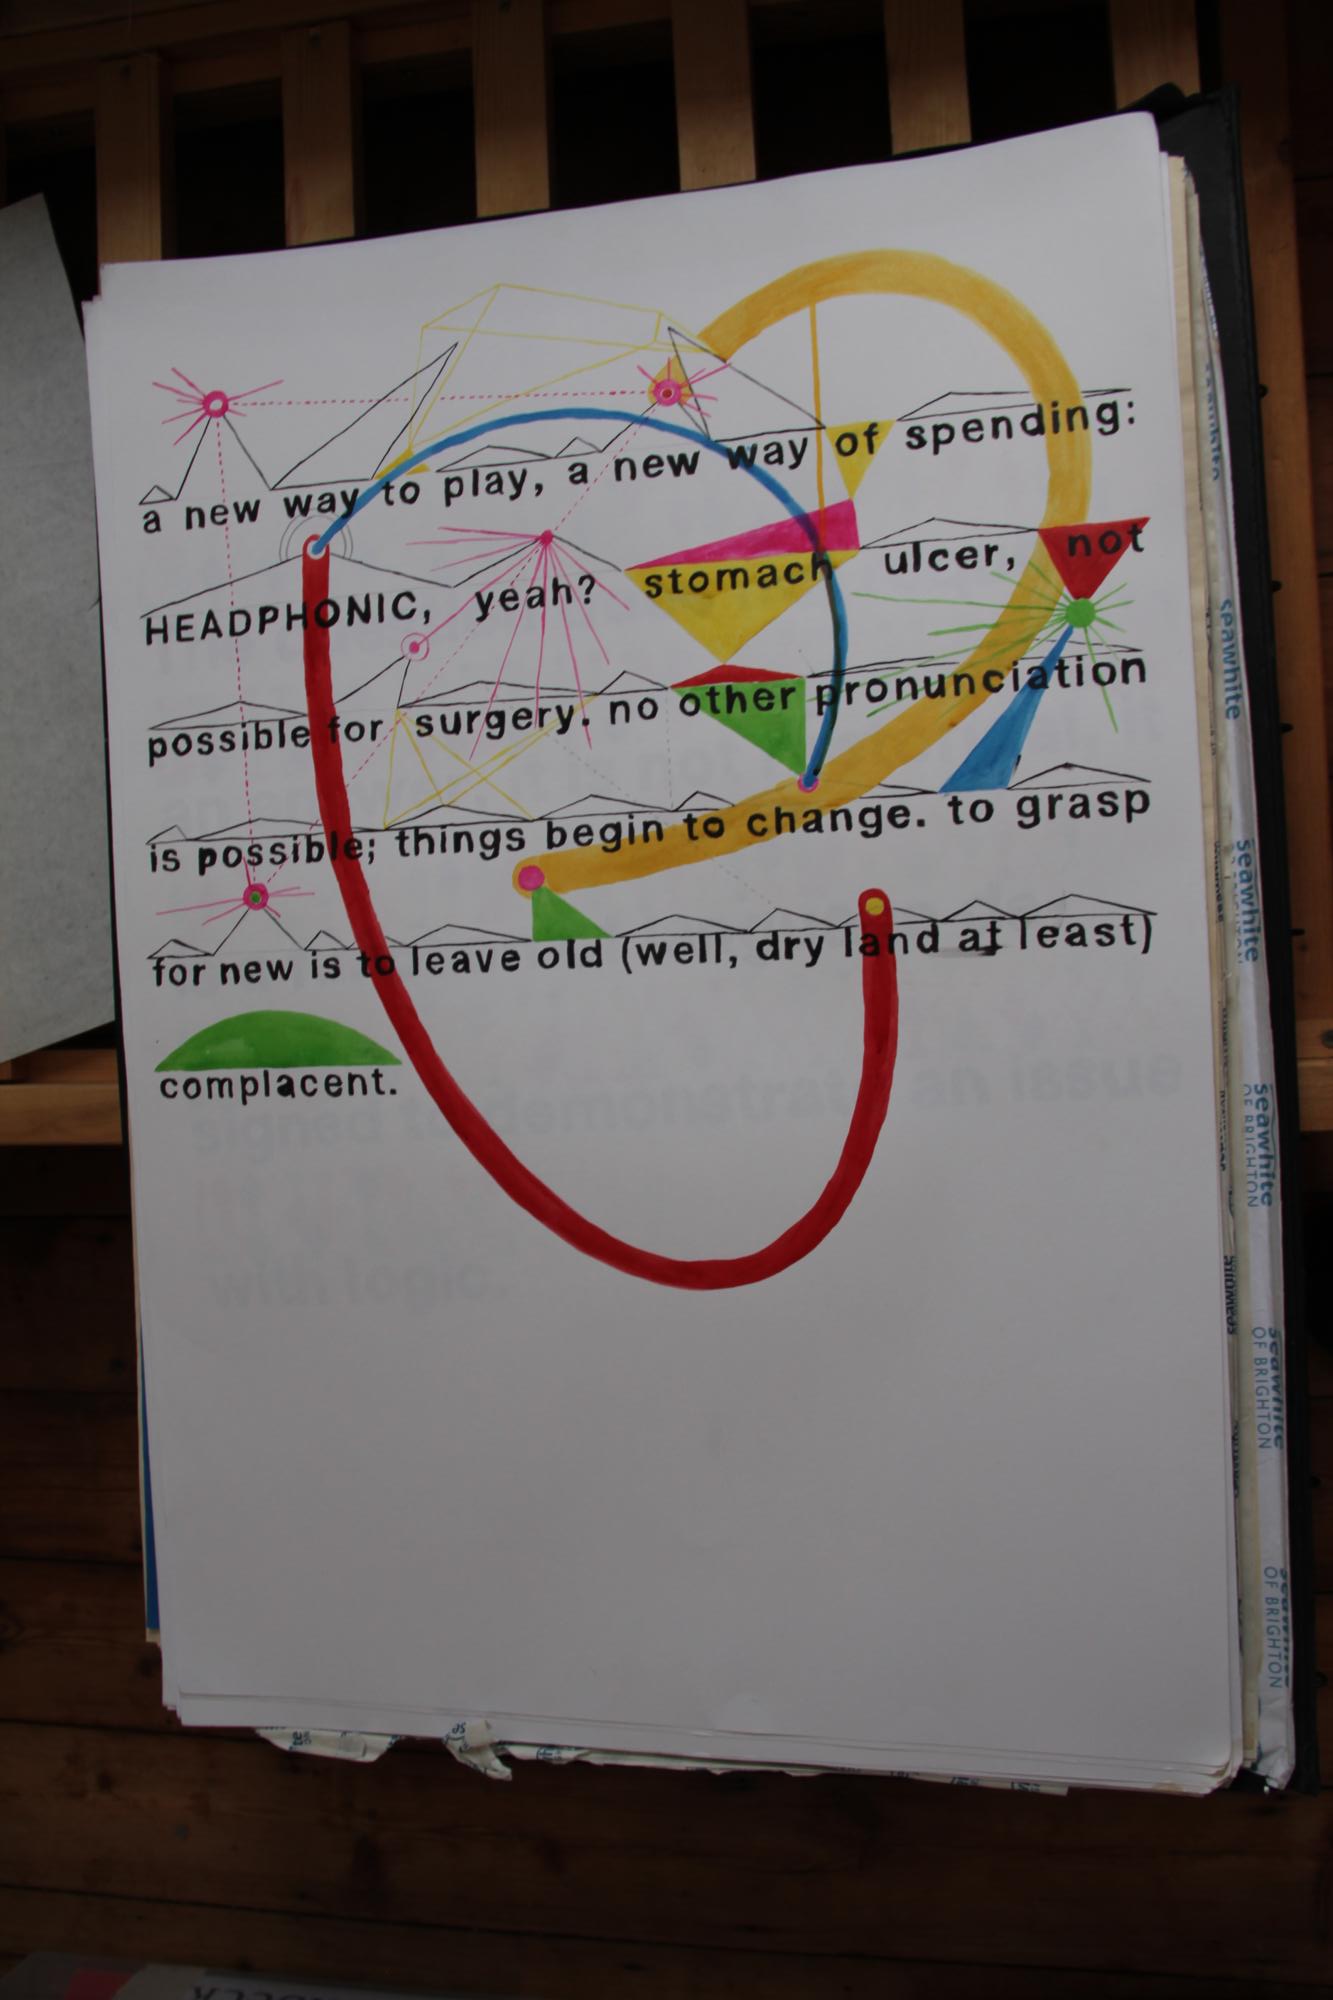 a new way to play, a new way of spending:
HEADPHONIC, yeah? stomach ulcer, not
possible for surgery. no other pronunciation
is possible; things begin to change. to grasp
for new is to leave old (well, dry land at least)
complacent.
signed to demonstrate an issue
with logic.
seawhite
seawhite
seawhite
OF BRIGHTON
seawhite
OF BRIGHTON
OF BRIGHTON